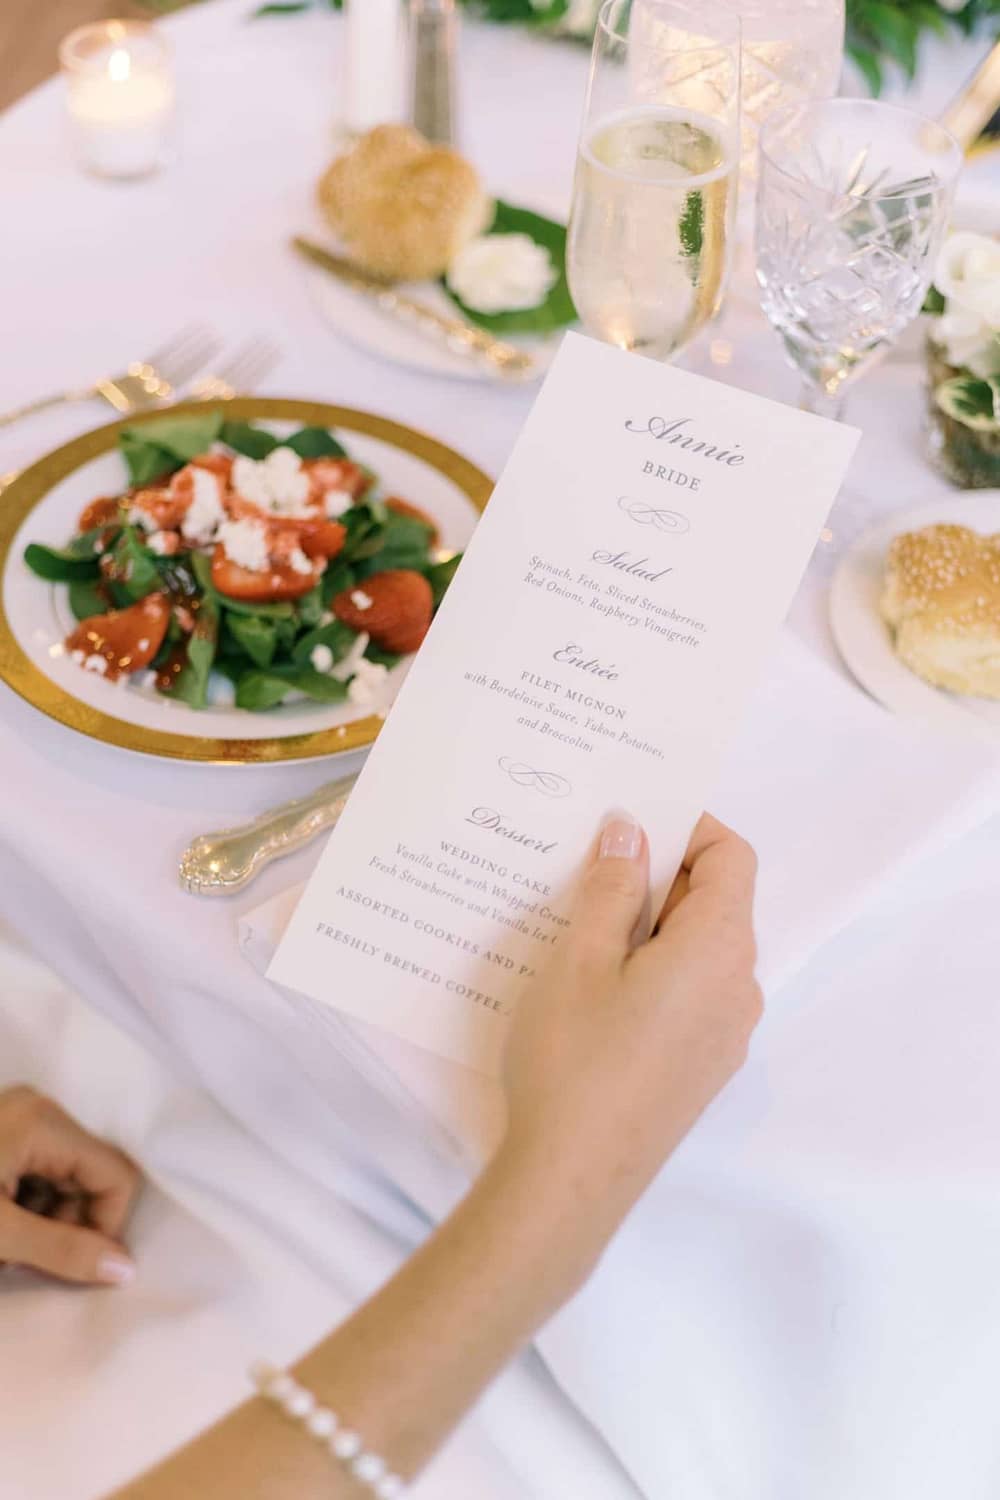 Annie
BRIDE
Salad
Spinach, Feta, Sliced Strawberries,
Red Onions, Raspberry Vinaigrette
Entrée
FILET MIGNON
with Bordelaise Sauce, Yukon Potatoes,
and Broccolini
Dessert
WEDDING CAKE
Vanilla Cake with Whipped Cream
Fresh Strawberries and Vanilla Ice
ASSORTED COOKIES AND
FRESHLY BREWED COFFEE